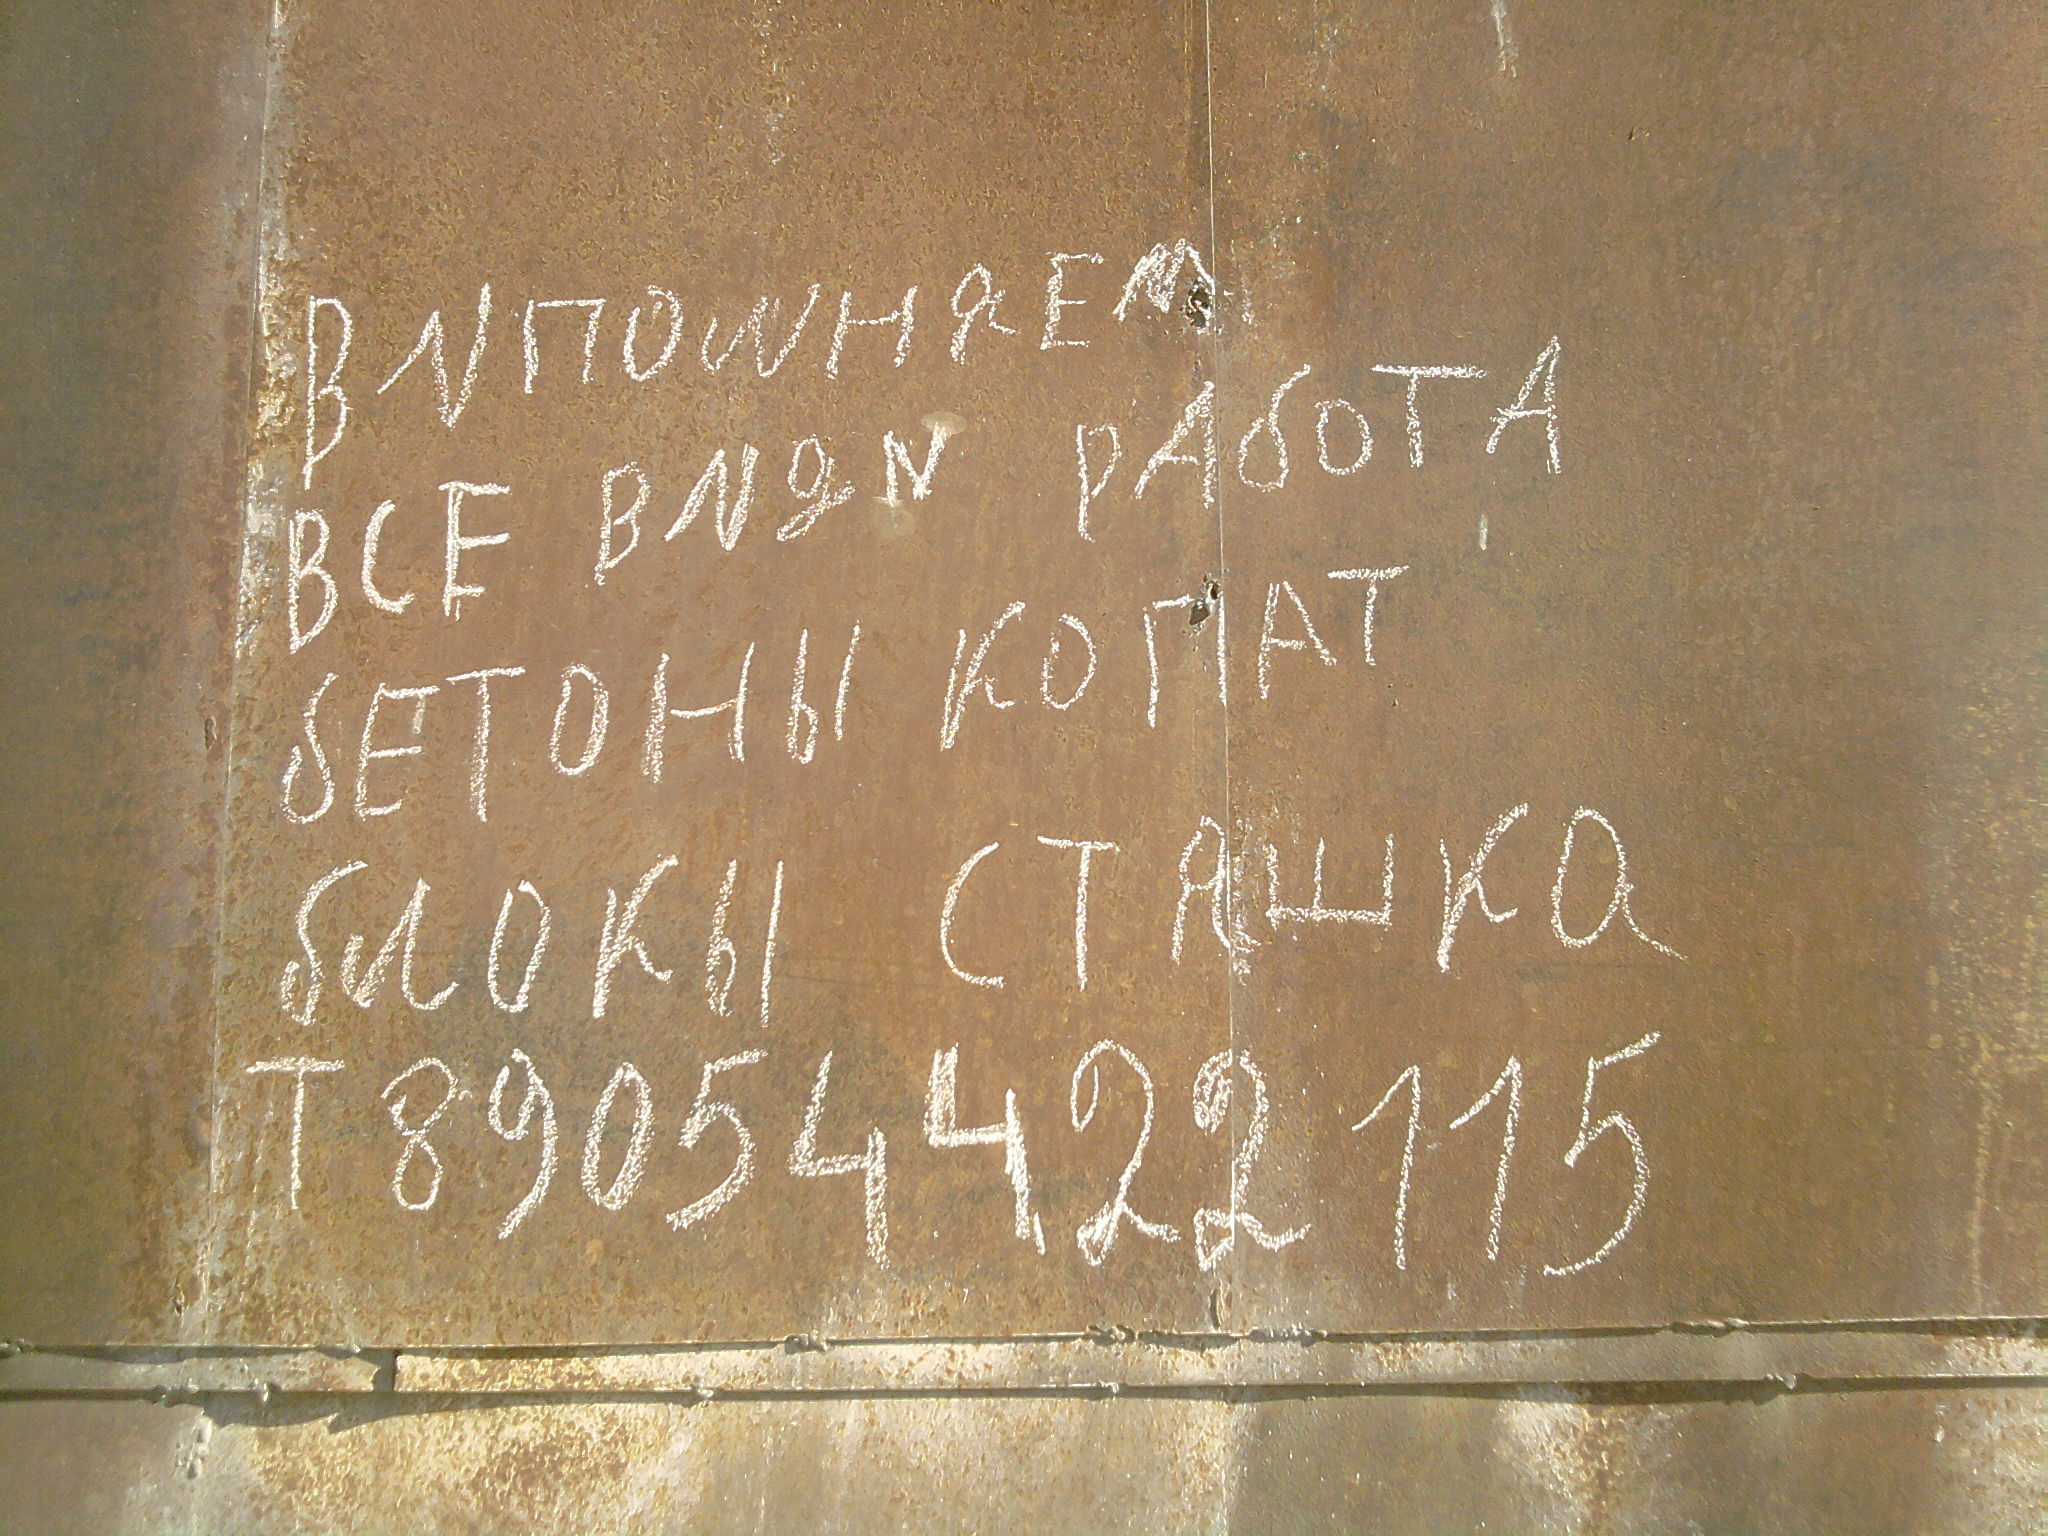 ВИПОЛНЯЕМ
ВСЕ ВИДИ РАБОТА
БЕТОНЫ КОПАТ
БЛОКЫ СТЯШКА
Т 89054422115